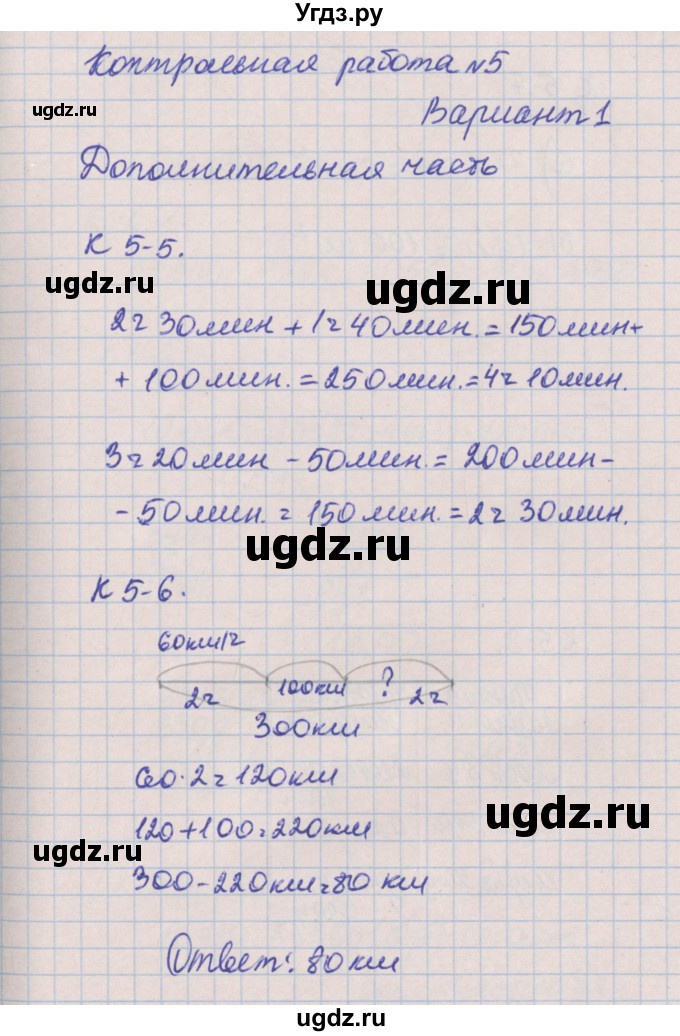 Угдз.ру
Контрольная работа №5
ugdz.ru
Вариант 1
Дополнительная часть
К 5-5.
ugdz.ru
ugdz.ru
2ч 30мин + 1ч 40мин. = 150мин +
+ 100мин. = 250мин. = 4ч 10мин.
3ч 20мин - 50мин. = 200мин -
- 50мин. = 150мин. = 2ч 30мин.
ugdz.ru
К 5-6.
ugdz.ru
60км/ч
2ч 100км ? 2ч
300км
60·2=120км
ugdz.ru
120+100=220км
ugdz.ru
300-220км=80 км
Ответ: 80км
ugdz.ru